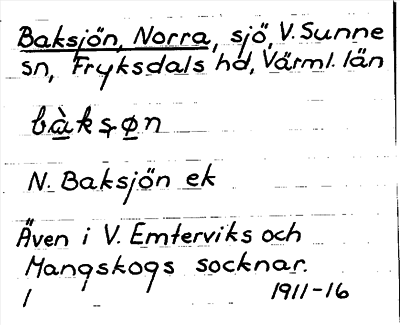 Baksjön, Norra, sjö, V. Sunne
sn, Fryksdals hd, Värml. län
bàksøn
N. Baksjön ek
Även i V. Emterviks och
Mangskogs socknar.
1 1911-16